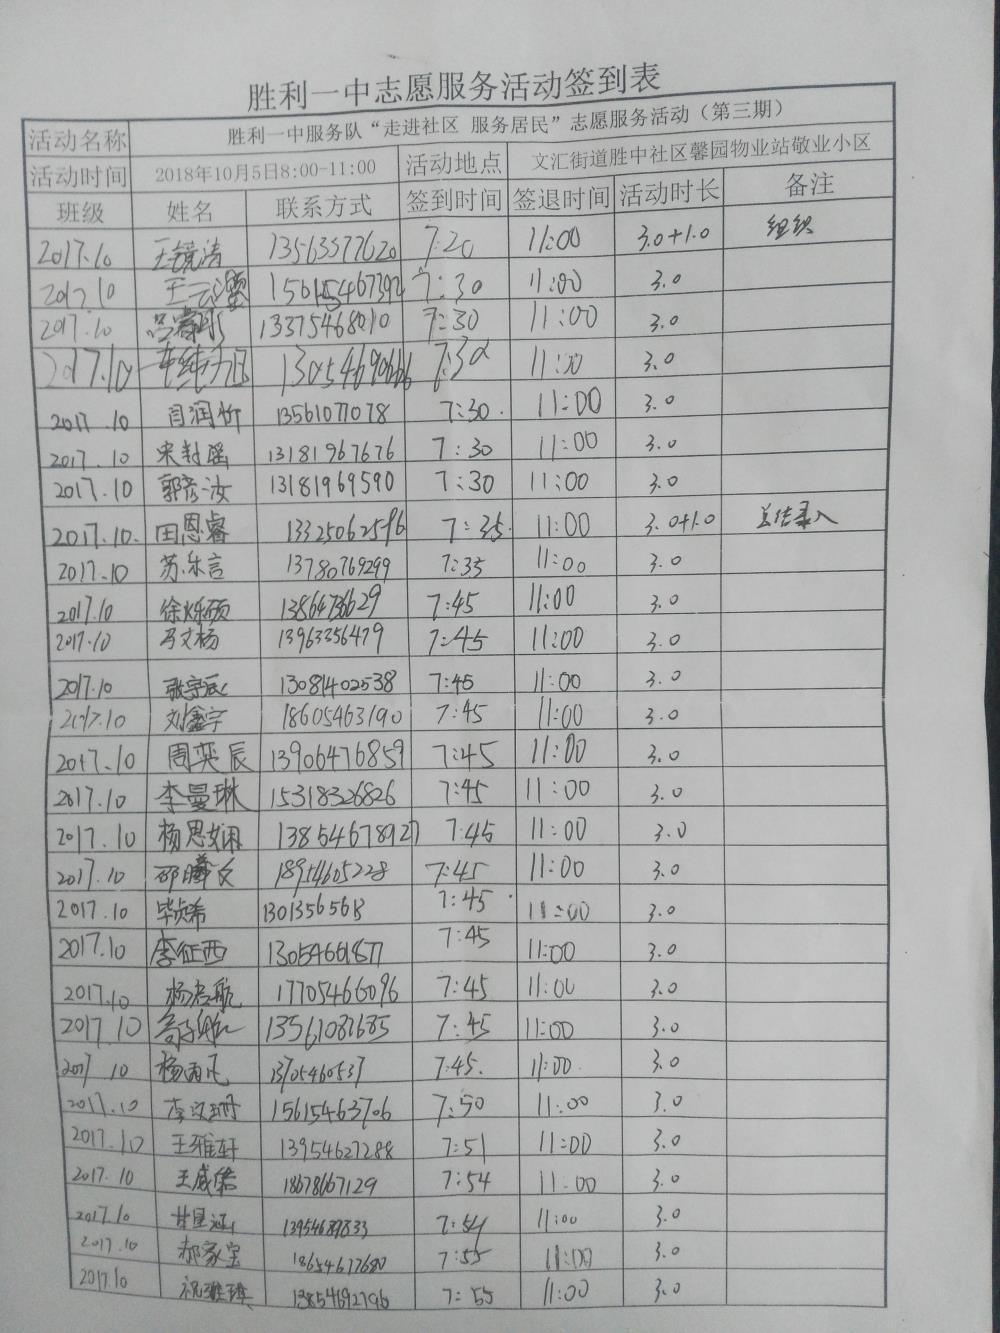 胜利一中志愿服务活动签到表
活动名称 胜利一中服务队“走进社区 服务居民”志愿服务活动（第三期）
活动时间 2018年10月5日8:00-11:00 活动地点 文汇街道胜中社区馨园物业站敬业小区
班级 姓名 联系方式 签到时间 签退时间 活动时长 备注
2017.10 王镜涛 13563577620 7:20 11:00 3.0+1.0 组织
2017.10 王云 7:30 11:00 3.0
2017.10 13375468010 7:30 11:00 3.0
2017.10 13054690666 7:30 11:00 3.0
2017.10 肖润忻 13561077078 7:30 11:00 3.0
2017.10 宋封瑶 13181967676 7:30 11:00 3.0
2017.10 郭彦汝 13181969590 7:30 11:00 3.0
2017.10 田恩睿 13325062596 7:35 11:00 3.0+1.0 总结录入
2017.10 苏乐言 13780769299 7:35 11:00 3.0
2017.10 徐烁硕 7:45 11:00 3.0
2017.10 马文杨 13963356479 7:45 11:00 3.0
2017.10 张宇辰 13081402538 7:45 11:00 3.0
2017.10 刘鑫宇 18605463190 7:45 11:00 3.0
2017.10 周奕辰 13906476859 7:45 11:00 3.0
2017.10 李曼琳 15318326826 7:45 11:00 3.0
2017.10 杨思娴 13854678927 7:45 11:00 3.0
2017.10 18954605228 7:45 11:00 3.0
2017.10 毕贞希 7:45 11:00 3.0
2017.10 李征西 13054661877 7:45 11:00 3.0
2017.10 17705466096 7:45 11:00 3.0
2017.10 13561087685 7:45 11:00 3.0
2017.10 杨雨凡 13705460537 7:45 11:00 3.0
2017.10 李汶珊 15615463706 7:50 11:00 3.0
2017.10 王雅轩 13954627288 7:51 11:00 3.0
2017.10 18678667129 7:54 11:00 3.0
2017.10 13954689833 7:54 11:00 3.0
2017.10 郝家宝 18654677680 7:55 11:00 3.0
2017.10 祝雅琪 13854692796 7:55 11:00 3.0